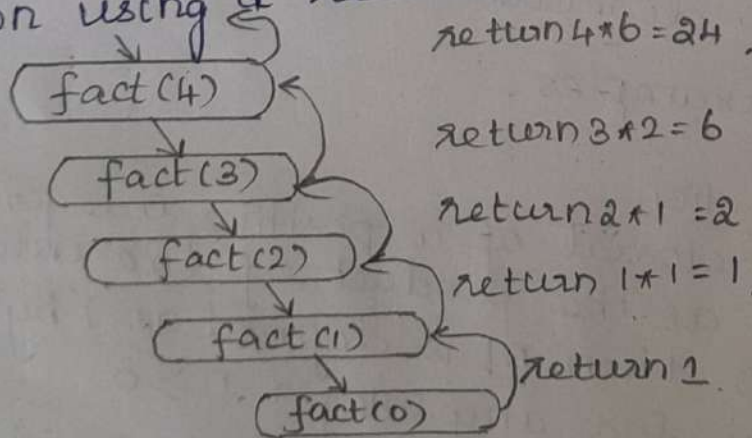 on using a
return 4*6 = 24
fact(4)
return 3*2 = 6
fact(3)
return 2*1 = 2
fact(2)
return 1*1 = 1
fact(1)
return 1
fact(0)